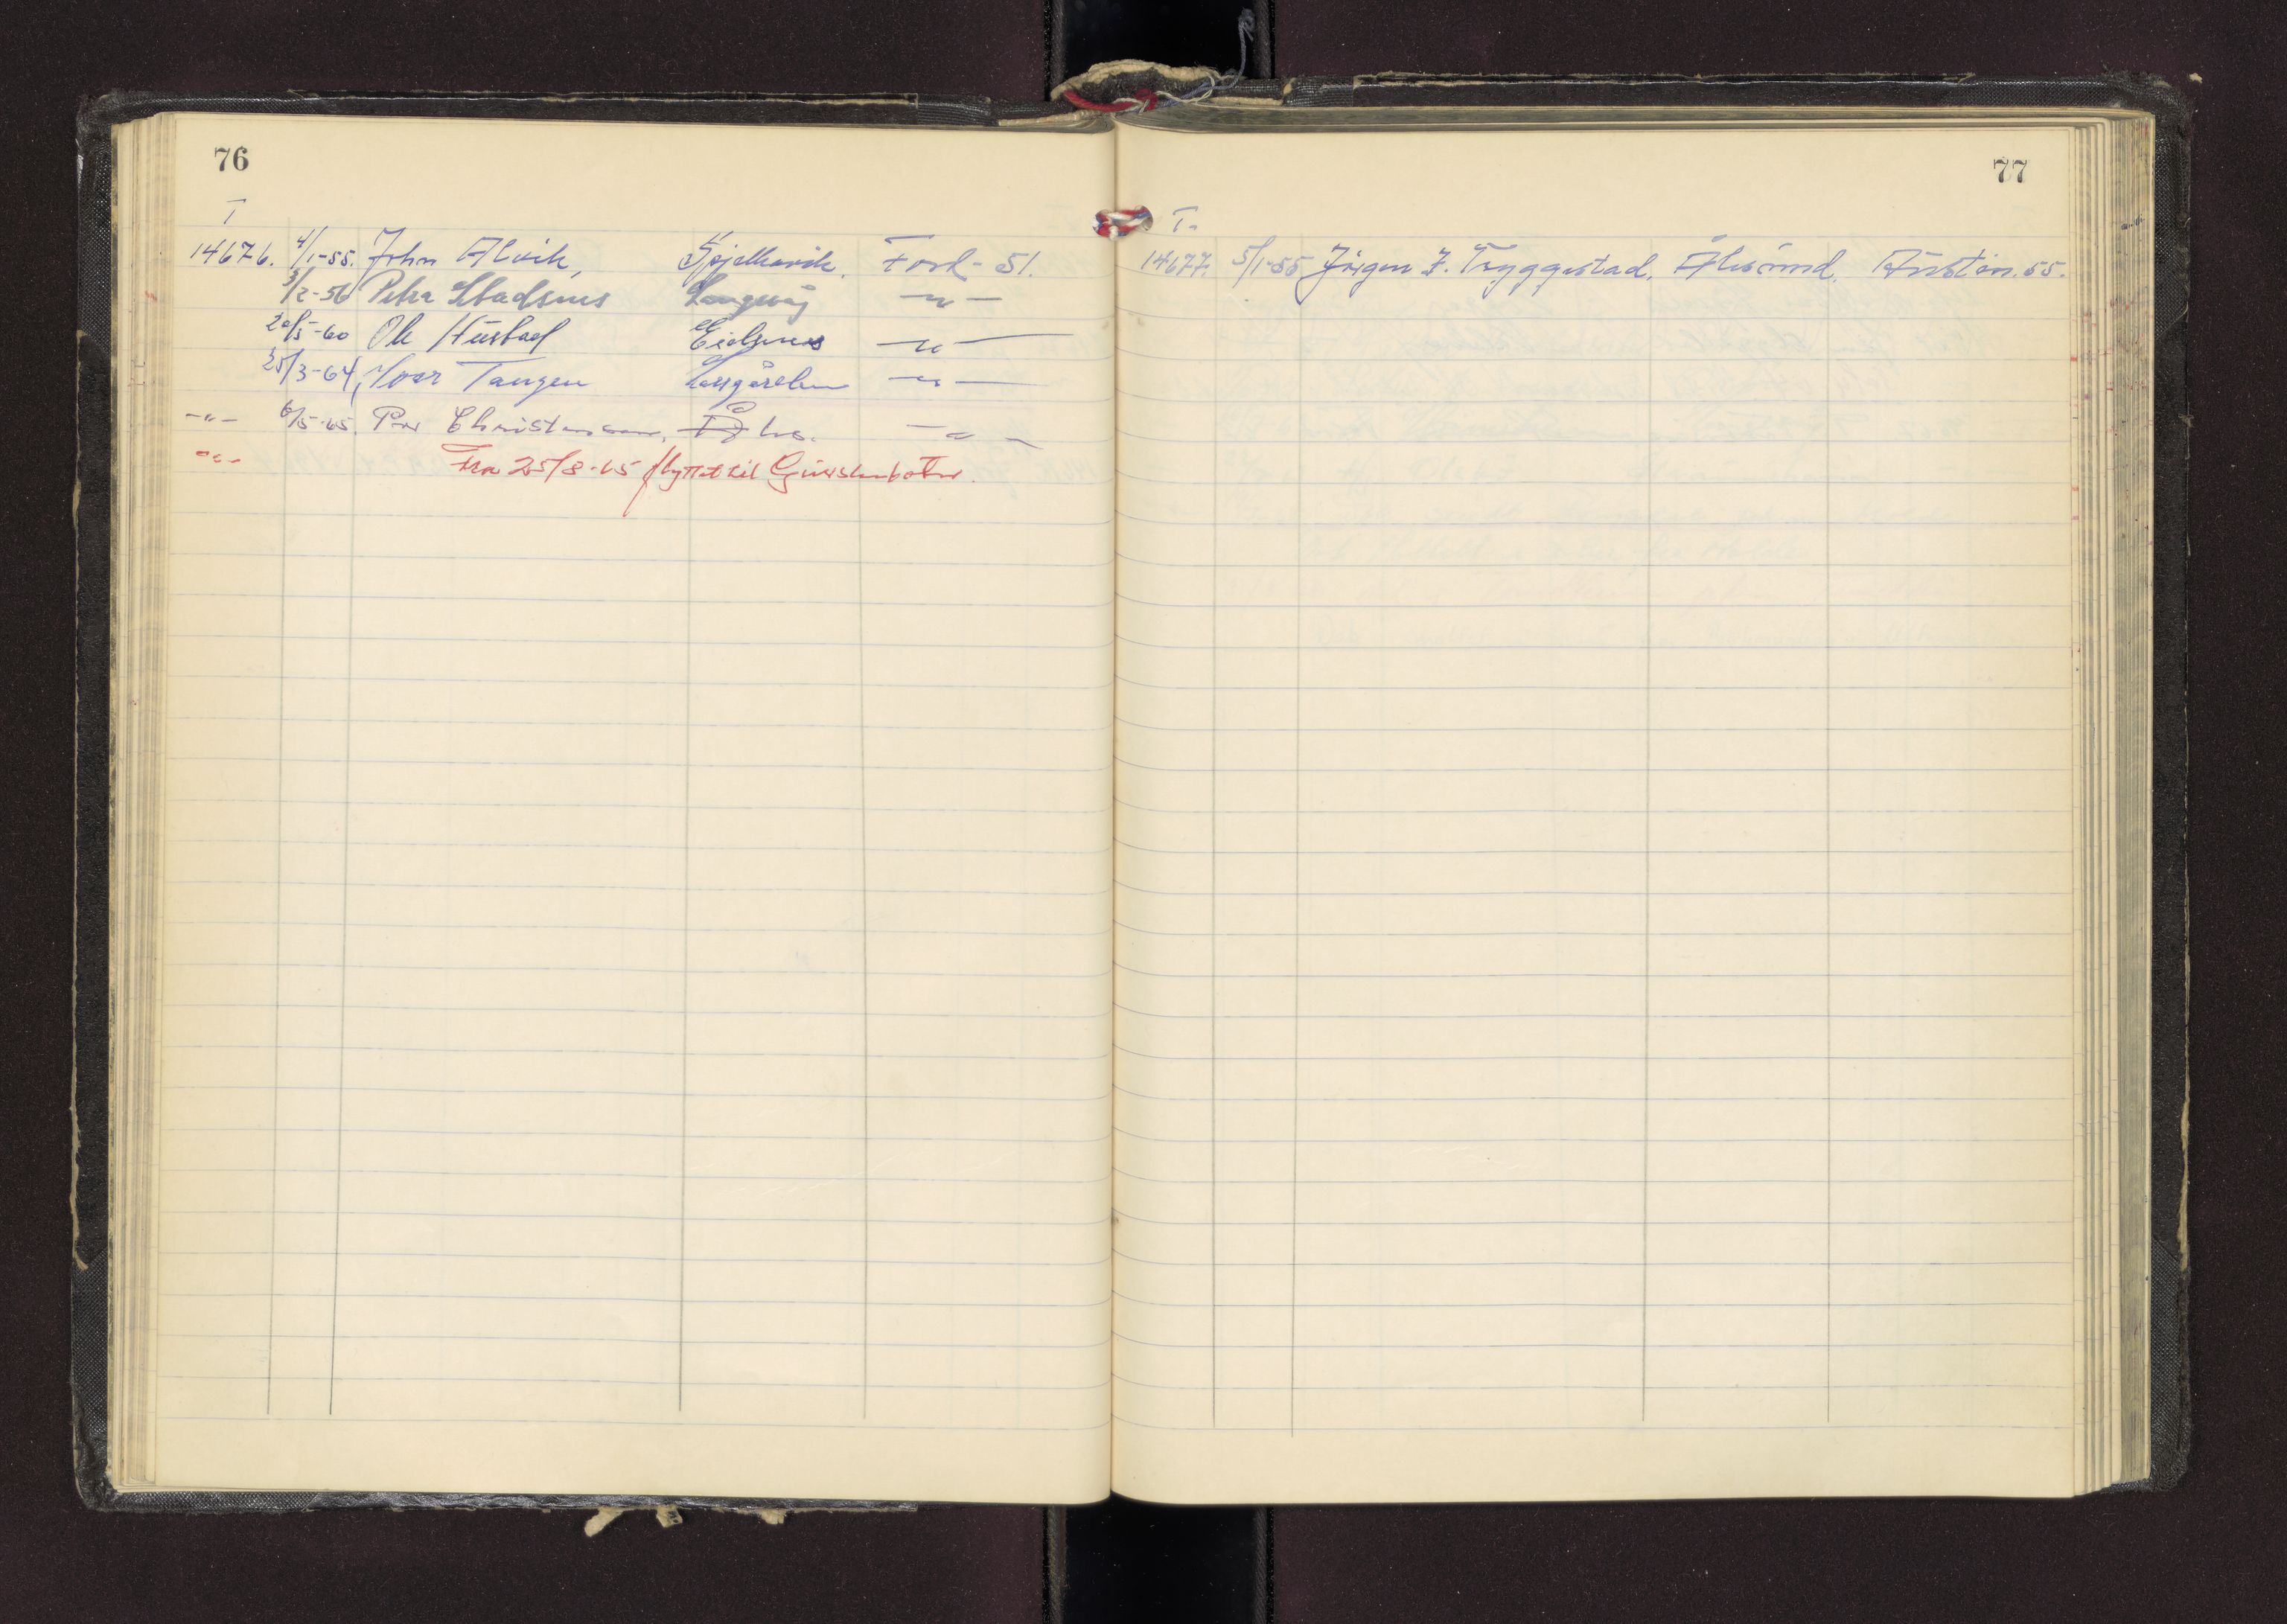 76
T
14676. 4/1-55. John Alvik, Spjelkavik. Ford - 51.
3/2-56 Petra Stadsnes Langevåg — " —
20/5-60 Ole Husbad Eidsnes — " —
25/3-64 Ivar Tangen — " —
— " — 6/5-65. Per Christensen, Åls. — " —
— " — Fra 25/8-65 flyttet til Gjerdsbotn.
77
T.
14677. 5/1-55 Jörgen J. Tryggestad, Ålesund, Austin. 55.